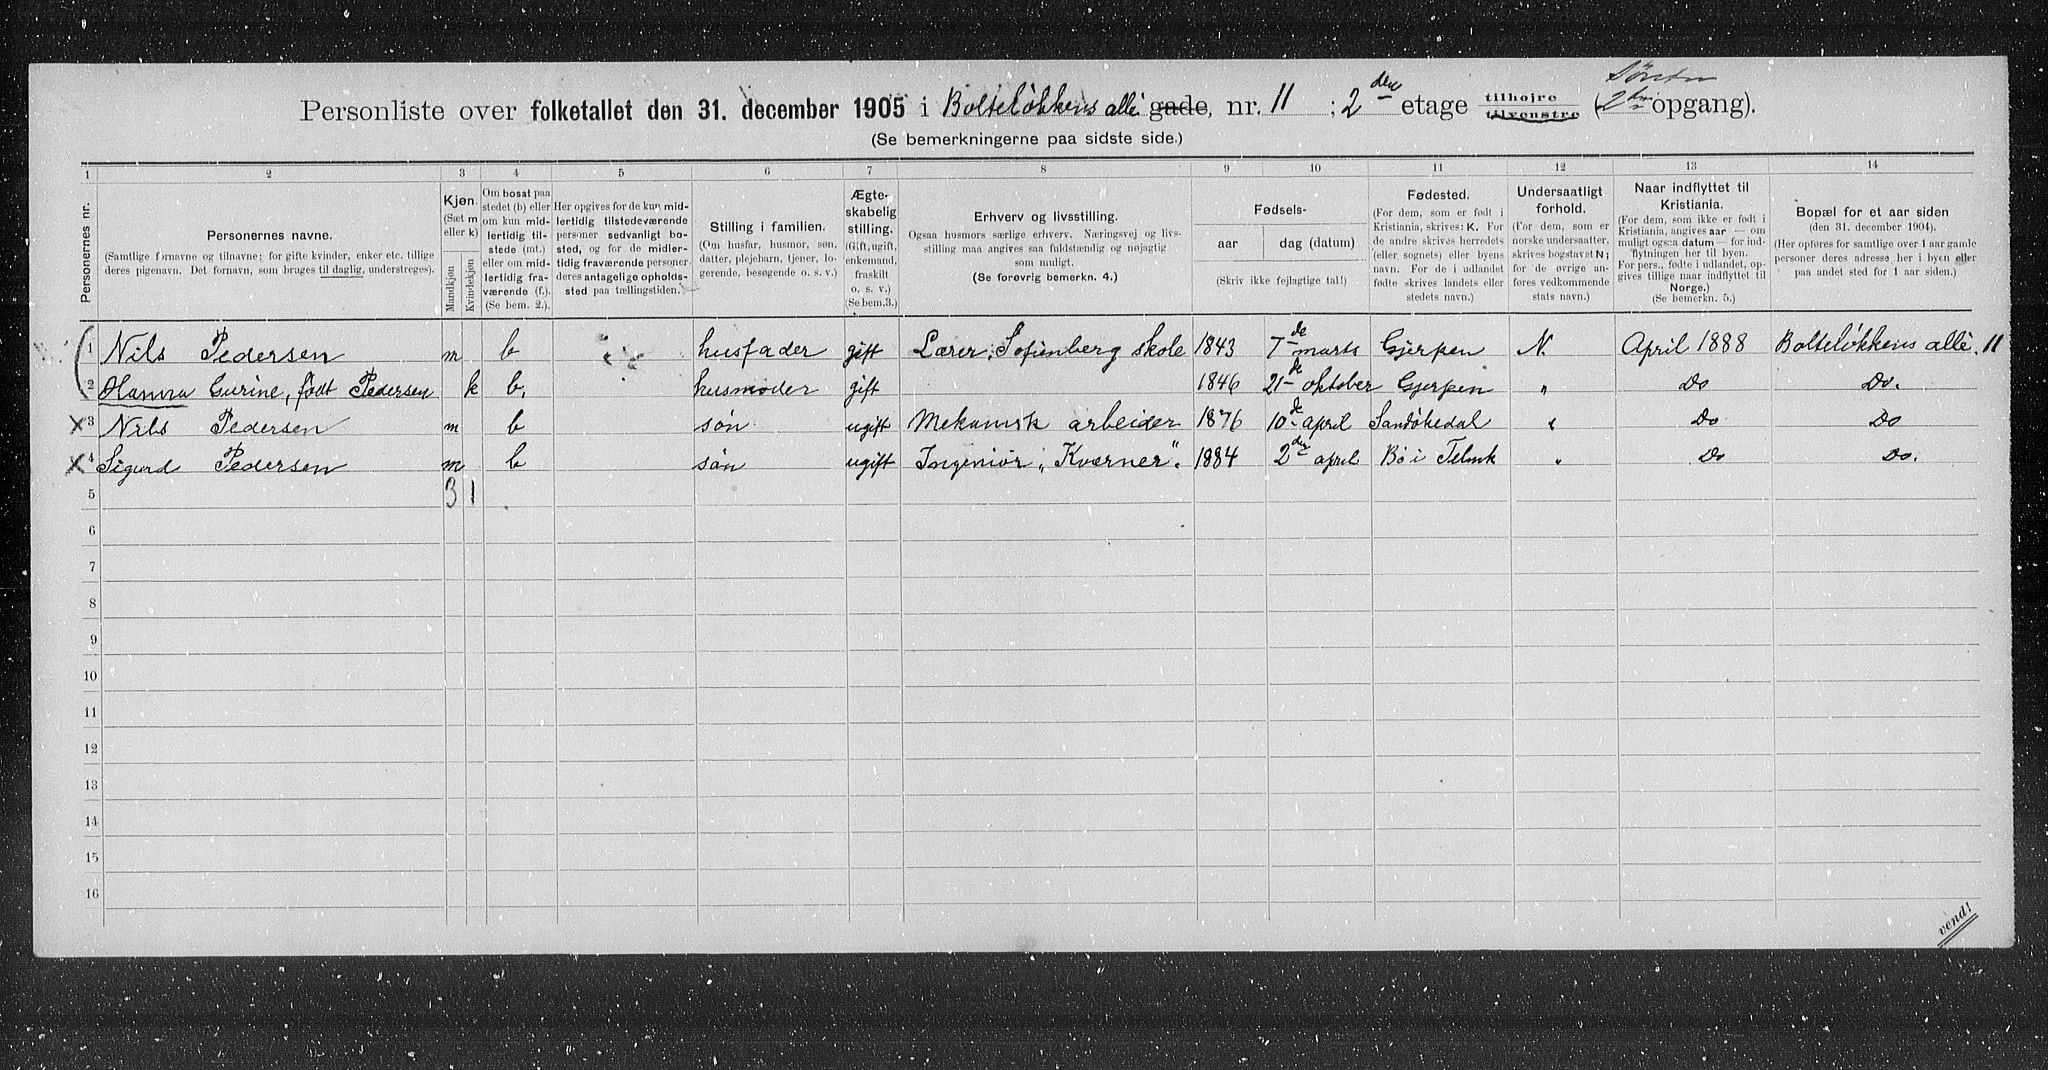 Personliste over folketallet den 31. december 1905 i Bolteløkkens allé gade, nr. 11 ; 2 den etage tilhøjre tilvenstre ( opgang).
(Se bemerkningerne paa sidste side.)
1 2 3 4 5 6 7 8 9 10 11 12 13 14
Personernes nr.
Personernes navne.
(Samtlige fornavne og tilnavne; for gifte kvinder, enker etc. tillige
deres pigenavn. Det fornavn, som bruges til daglig, understreges).
Kjøn.
(Sæt m
eller k)
Mandkjøn
Kvindekjøn
Om bosat paa
stedet (b) eller
om kun mid-
lertidig til-
stede (mt.)
eller om mid-
lertidig fra-
værende (f.).
(Se bem. 2.).
Her opgives for de kun mid-
lertidig tilstedeværende
personer sedvanlig bo-
sted, og for de midler-
tidig fraværende personer
deres antagelige opholds-
sted paa tællingstiden.
Stilling i familien.
(Om husfar, husmor, søn,
datter, plejebarn, tjener, lo-
gerende, besøgende o. s. v.)
Ægte-
skabelig
stilling.
(Gift, ugift,
enkemand,
fraskilt
o. s. v.)
(Se bem.3.)
Erhverv og livsstilling.
Ogsaa husmors særlige erhverv. Næringsvej og livs-
stilling maa angives saa fuldstændig og nøjagtig
som muligt.
(Se forøvrig bemerkn. 4.)
Fødsels-
aar dag (datum)
(Skriv ikke fejlagtige tal!)
Fødested.
(For dem, som er født i
Kristiania, skrives: K. For
de andre skrives herredets
(eller sognets) eller byens
navn. For de i udlandet
fødte skrives landets eller
stedets navn.)
Undersaatligt
forhold.
(For dem, som er
norske undersaatter,
skrives bogstavet N;
for de øvrige an-
føres vedkommende
stats navn.)
Naar indflyttet til
Kristiania.
(For dem, som ikke er født i
Kristiania, angives aar — om
muligt ogsaa datum — for ind-
flytningen her til byen.
For pers., fødte i udlandet, op-
gives tillige naar indflyttet til
Norge.)
(Se bemerkn. 5.)
Bopæl for et aar siden
(den 31. december 1904).
(Her opføres for samtlige over 1 aar gamle
personer deres adresse her i byen eller
paa andet sted for 1 aar siden.)
1 Nils Pedersen m b husfader gift Lærer, Sofienberg skole 1843 7de marts Gjerpen N. April 1888 Bolteløkkens allé. 11
2 Hanna Gurine, født Pedersen k b. husmoder gift 1846 21de oktober Gjerpen " Do Do.
x 3 Nils Pedersen m b søn ugift Mekanisk arbeider 1876 10de april Sandøkedal " Do Do
x 4 Sigurd Pedersen m b søn ugift Ingeniør „Kværner". 1884 2den april Bø i Telmk " Do Do.
5 3 1
6
7
8
9
10
11
12
13
14
15
16
vend!